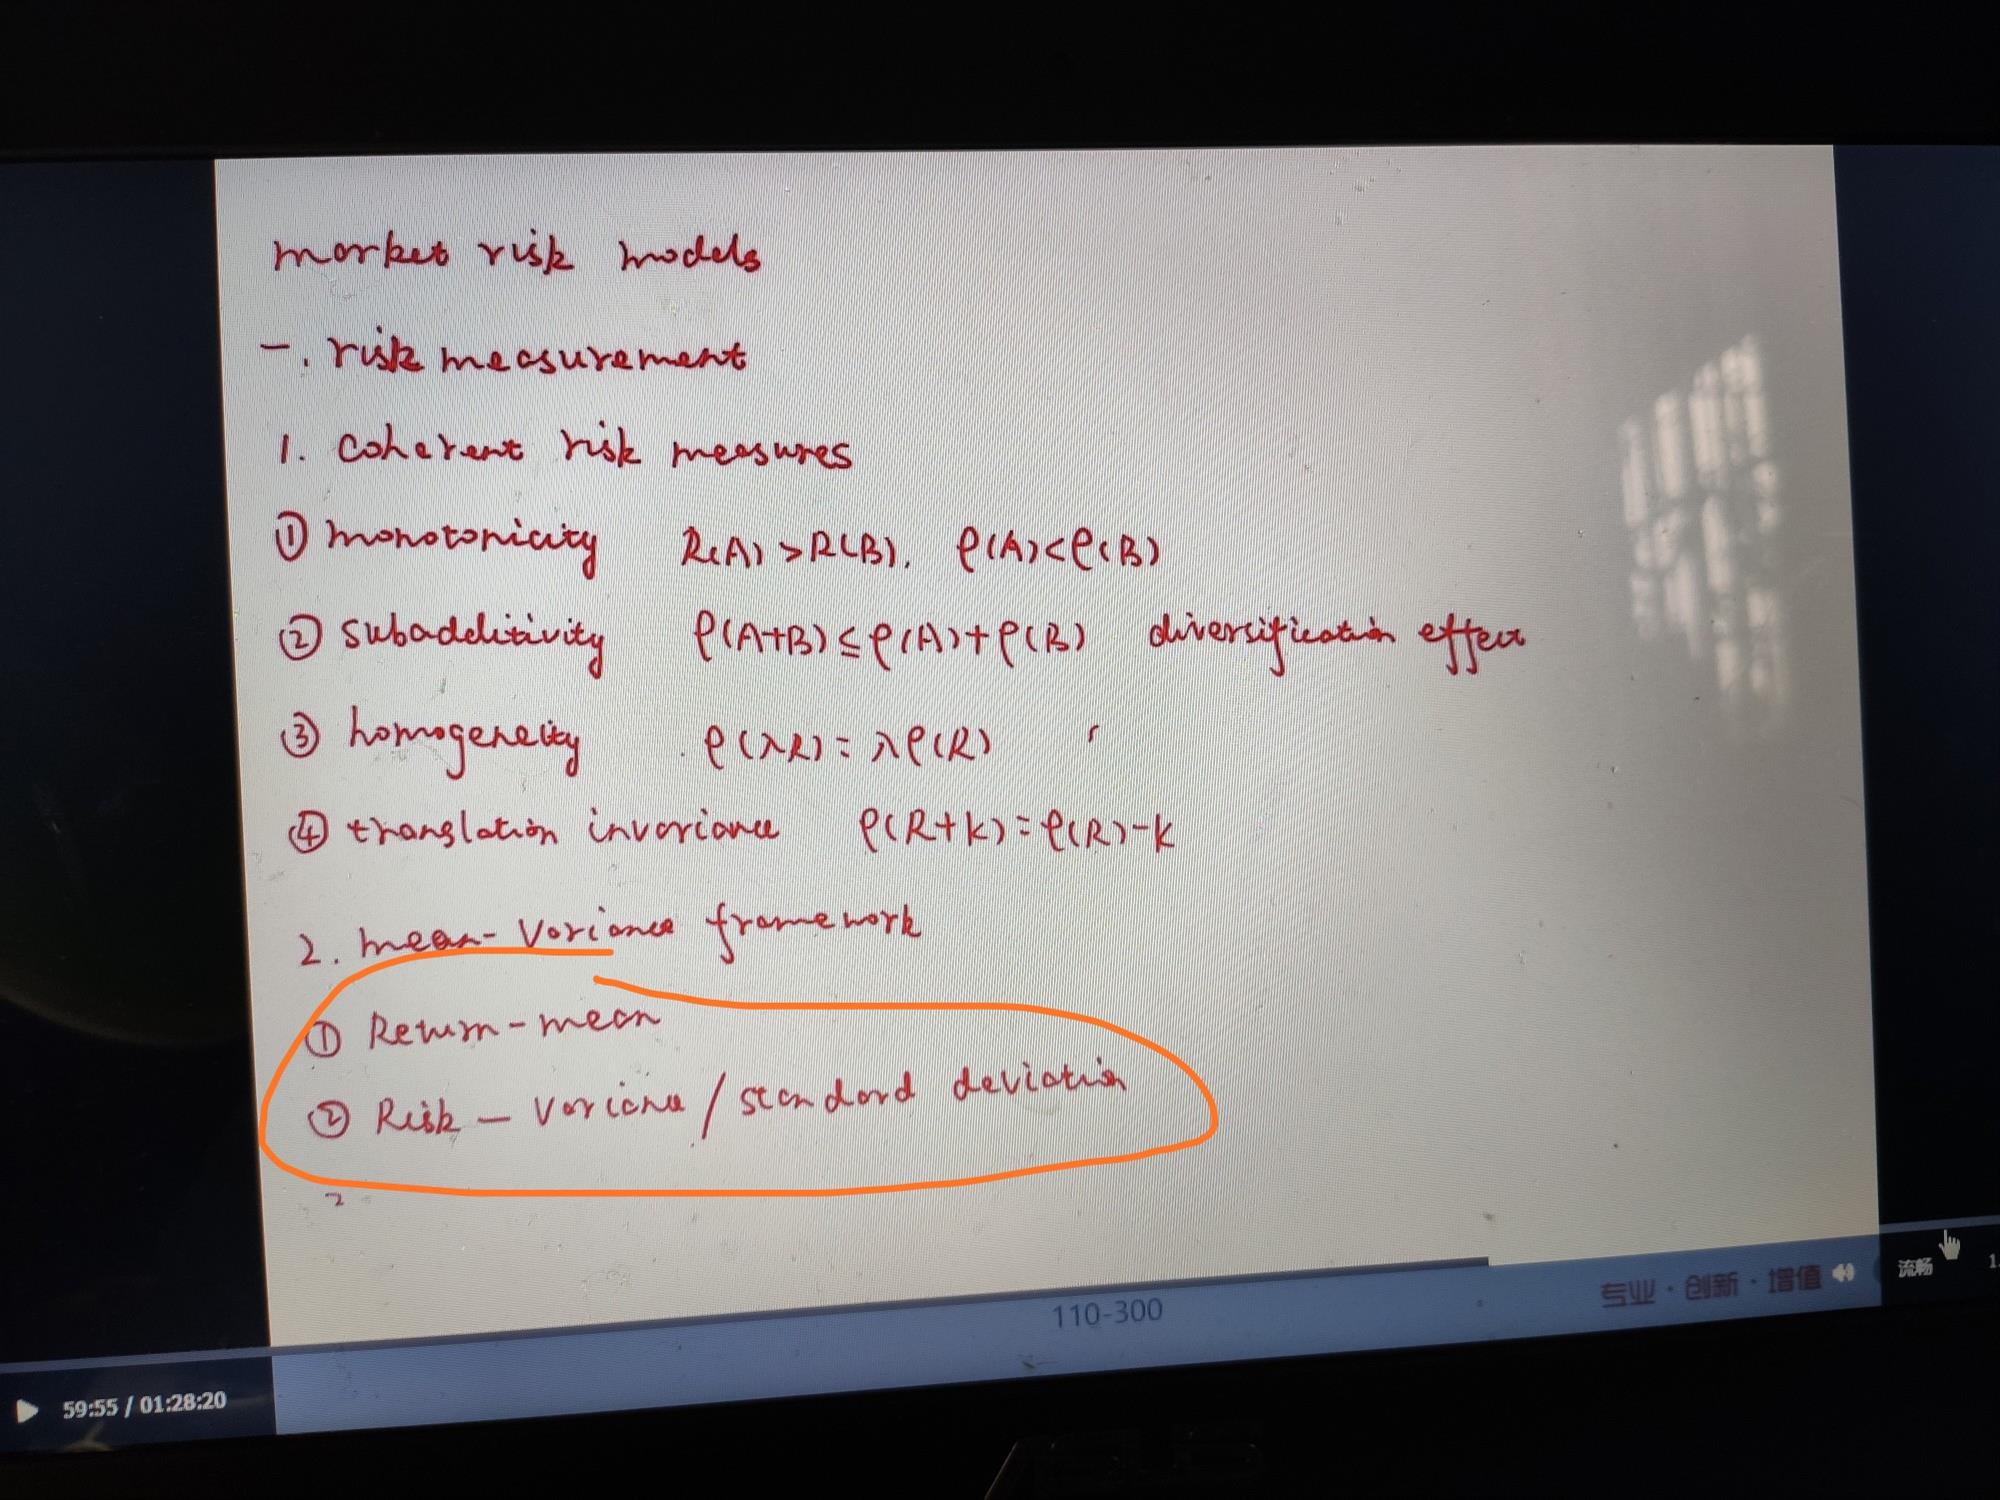 market risk models
一. risk measurement
1. coherent risk measures
① monotonicity R(A)>R(B), ρ(A)<ρ(B)
② subadditivity ρ(A+B)≤ρ(A)+ρ(B) diversification effect
③ homogeneity ρ(λR)=λρ(R)
④ translation invariance ρ(R+k)=ρ(R)-k
2. mean-variance framework
① Return-mean
② Risk-variance/standard deviation
110-300
专业·创新·增值
流畅
59:55 / 01:28:20